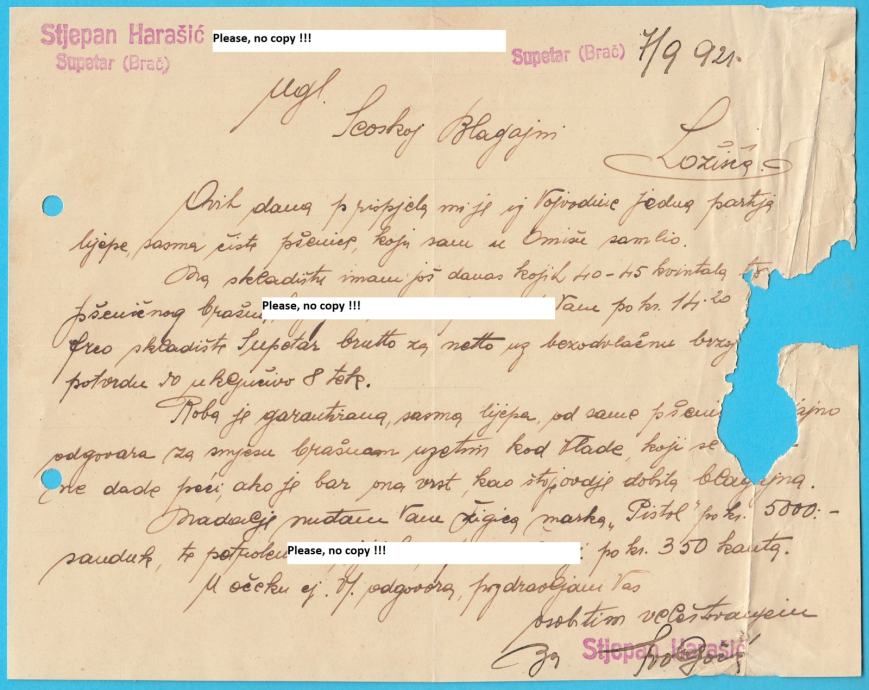 Stjepan Harašić Please, no copy !!!
Supetar (Brač) Supetar (Brač) 7/9 921.
Ugl.
Seoskoj Blagajni
Ložišća.
Ovih dana prispjela mi je iz Vojvodine jedna partija
lijepe, sasma čiste pšenice, koju sam u Omišu samlio.
Na skladištu imam još danas kojih 40-45 kvintala
pšeničnog Please, no copy !!! Vam po kr. 14.20
frco skladište Supetar brutto za netto uz bezodvlačnu
potvrdu do uključivo 8 tek.
Roba je garantirana, sasma lijepa, od same
odgovara za smjesu brašnom uzetim kod Vlade, koji se
ne dade peći, ako je bar ona vrst, kao što ovdje dobila blagajna.
Nadalje nudjam Vam žigica marka „Pistol" po kr. 5000.-
sanduk, te Please, no copy !!! po kr. 350 kanta.
U očeku cj. Vj. odgovora, pozdravljam Vas
osobitim veleštovanjem
za Stjepan Harašić